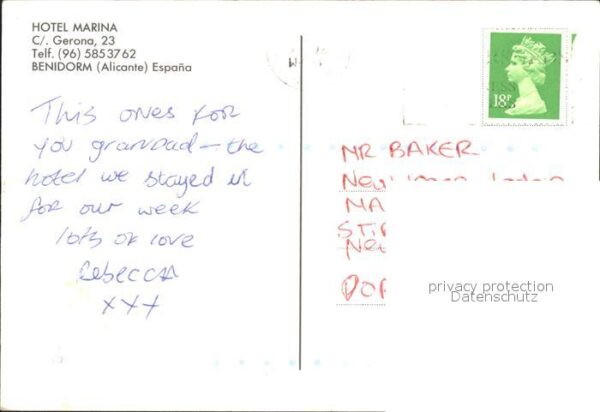 HOTEL MARINA
C/. Gerona, 23
Telf. (96) 5853762
BENIDORM (Alicante) España
This ones for
you grandad – the
hotel we stayed in
for our week
lots of love
Rebecca
xxx
18P
MR BAKER
MA
STI
DOR
privacy protection
Datenschutz